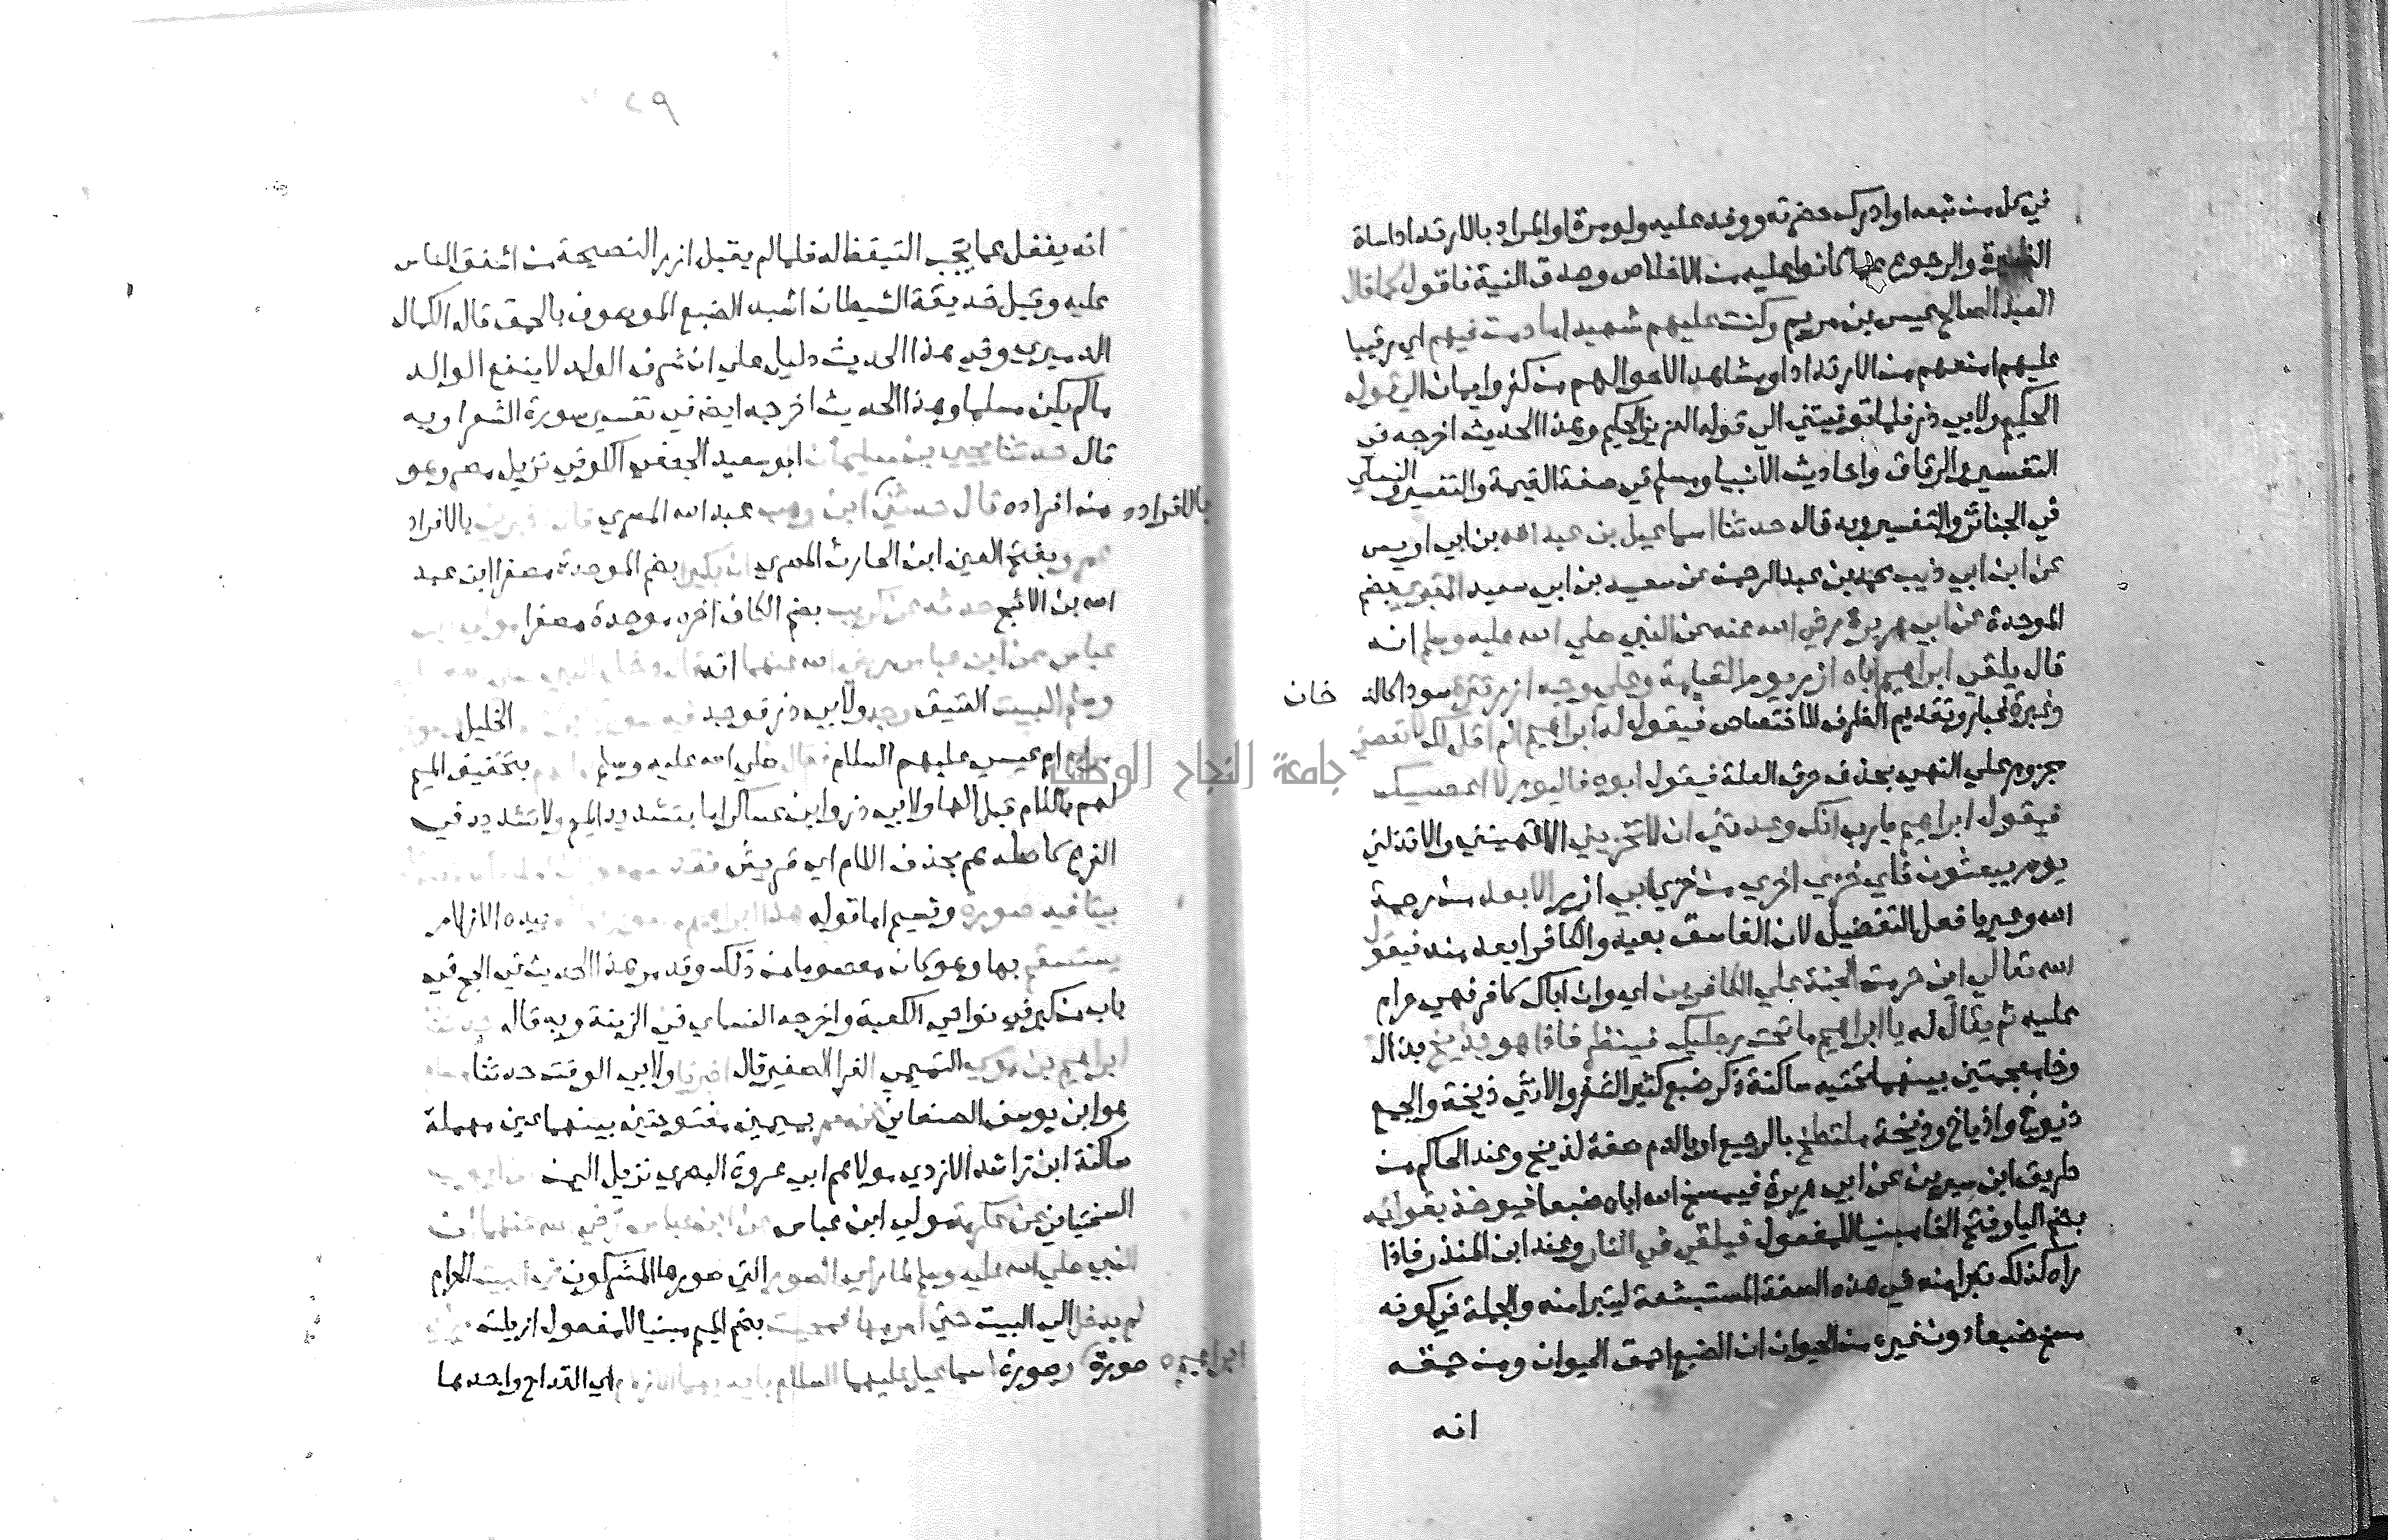 في كل من تبعه او ادرك حضرته ووفد عليه ولو مرة او المراد بالارتداد اساة
السيرة والرجوع عما كانوا عليه من الاخلاص وصدق النية فاقول كما قال
العبد الصالح عيسى بن مريم وكنت عليهم شهيدا ما دمت فيهم اي رقيبا
عليهم امنعهم من الارتداد او مشاهدا لاحوالهم من كفر وايمان الي قوله
الحكيم ولابي ذر فلما توفيتني الي قوله العزيز الحكيم وهذا الحديث اخرجه في
التفسير والرقاق واحاديث الانبيا ومسلم في صفة القيمة والتفسير والنساي
في الجنائز والتفسير وبه قال حدثنا اسماعيل بن عبد الله بن ابي اويس
عن ابن ابي ذيب محمد بن عبد الرحمن عن سعيد بن ابي سعيد المقبري بضم
الموحدة عن ابي هريرة رضي الله عنه عن النبي صلي الله عليه وسلم انه
قال يلقي ابراهيم اباه ازر يوم القيامة وعلي وجه ازر قترة سواد كالدخان
وغبرة غبار وتقديم الظرف للاختصاص فيقول له ابراهيم الم اقل لك لا تعصني
مجزوم علي النهي بحذف حرف العلة فيقول ابوه فاليوم لا اعصيك
فيقول ابراهيم يا رب انك وعدتني ان لا تخزيني الا تهينني والا تذلني
يوم يبعثون فاي خزي اخزي من خزي ابي ازر الابعد من رحمة
الله وعبر بافعل التفضيل لان الفاسق بعيد والكافر ابعد منه فيقول
الله تعالي اني حرمت الجنة علي الكافرين اي وان اباك كافر فهي حرام
عليه ثم يقال له يا ابراهيم ما تحت رجليك فينظر فاذا هو بذيخ بذال
وخا معجمتين بينهما تحتيه ساكنة ذكر ضبع كثير الشعر والانثي ذيخة والجمع
ذيوخ واذياخ وذيخة ملتطخ بالرجيع او بالدم صفة لذيخ وعند الحاكم من
طريق ابن سيرين عن ابي هريرة فيمسخ الله اباه ضبعا فيوخذ بقوائمه
بضم اليا وفتح الخا مبنيا للمفعول فيلقي في النار وعند ابن المنذر فاذا
راه كذلك تبرا منه في هذه الصفة المستبشعة ليتبرا منه والجملة في كونه
مسخ ضبعا دون غيره من الحيوان ان الضبع احمق الحيوان ومن حمقه
انه
٢٩
انه يغفل عما يجب التيقظ له فلما لم يقبل ازر النصيحة من اشفق الناس
عليه وقبل خديعة الشيطان اشبه الضبع الموصوف بالحمق قاله الكمال
الدميري وفي هذا الحديث دليل علي ان شرف الولد لا ينفع الوالد
ما لم يكن مسلما وهذا الحديث اخرجه ايضا في تفسير سورة الشعرا وبه
قال حدثنا يحيي بن سليمان ابو سعيد الجعفي الكوفي نزيل مصر وهو
من افراده قال حدثني بالافراد ابن وهب عبد الله المصري قال اخبرني بالافراد
عمرو بفتح العين ابن الحارث المصري ان بكيرا بضم الموحدة مصغرا ابن عبد
الله بن الاشج حدثه عن كريب بضم الكاف اخره موحدة مصغرا مولي ابن
عباس عن ابن عباس رضي الله عنهما انه قال دخل النبي
البيت العتيق وجد ولابي ذر فوجد فيه الخليل
ام عيسي عليهم السلام فقال صلي الله عليه وسلم بتخفيف الميم
لهم باللام قبل الها ولابي ذر وابن عساكر اما بتشديد الميم ولا تشديد في
الفرع كاصله هم بحذف اللام اي قريش فقد
بيتا فيه صورة وقسيم اما قوله هذا بيده الازلام
يستقسم بها وهو كان معصوما من ذلك وقد مر هذا الحديث في الحج في
باب من كبر في نواحي الكعبة واخرجه النساي في الزينة وبه قال حدثنا
ابراهيم بن موسي التميمي الفرا الصغير قال اخبرنا ولابي الوقت حدثنا هشام
هو ابن يوسف الصنعاني عن معمر بميمين مفتوحتين بينهما عين مهملة
ساكنة ابن راشد الازدي مولاهم ابي عروة البصري نزيل اليمن عن ايوب
السختياني عن عكرمة مولي ابن عباس عن ابن عباس رضي الله عنهما ان
النبي صلي الله عليه وسلم لما راي الصور التي صورها المشركون في البيت الحرام
لم يدخل الي البيت حتي امر بها فمحيت بضم الميم مبنيا للمفعول ازيلت
صورة ابراهيم وصورة اسماعيل عليهما السلام بايديهما الازلام اي القداح واحدها
جامعة النجاح الوطنية